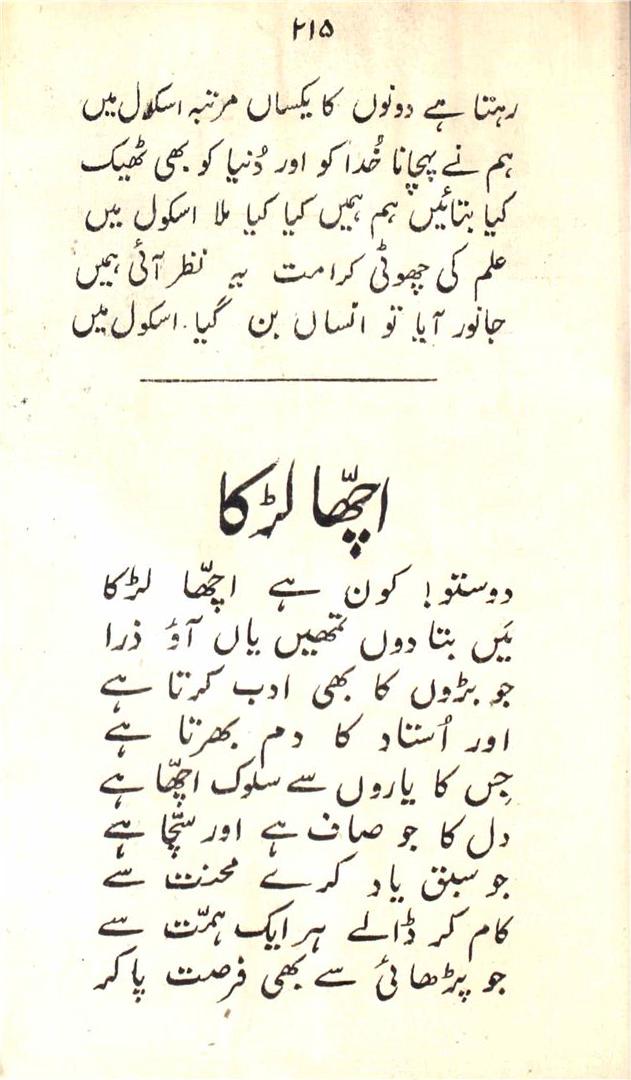 ۲۱۵
رہتا ہے دونوں کا یکساں مرتبہ اسکول میں
ہم نے پہچانا خُدا کو اور دُنیا کو بھی ٹھیک
کیا بتائیں ہم ہمیں کیا کیا ملا اسکول میں
علم کی چھوٹی کرامت یہ نظر آئی ہمیں
جانور آیا تو انساں بن گیا اسکول میں
اچّھا لڑکا
دوستو! کون ہے اچّھا لڑکا
مَیں بتا دوں تمھیں یاں آؤ ذرا
جو بڑوں کا بھی ادب کرتا ہے
اور اُستاد کا دم بھرتا ہے
جِس کا یاروں سے سلوک اچّھا ہے
دل کا جو صاف ہے اور سچّا ہے
جو سبق یاد کرے محنت سے
کام کر ڈالے ہر ایک ہمّت سے
جو پڑھائی سے بھی فرصت پا کر